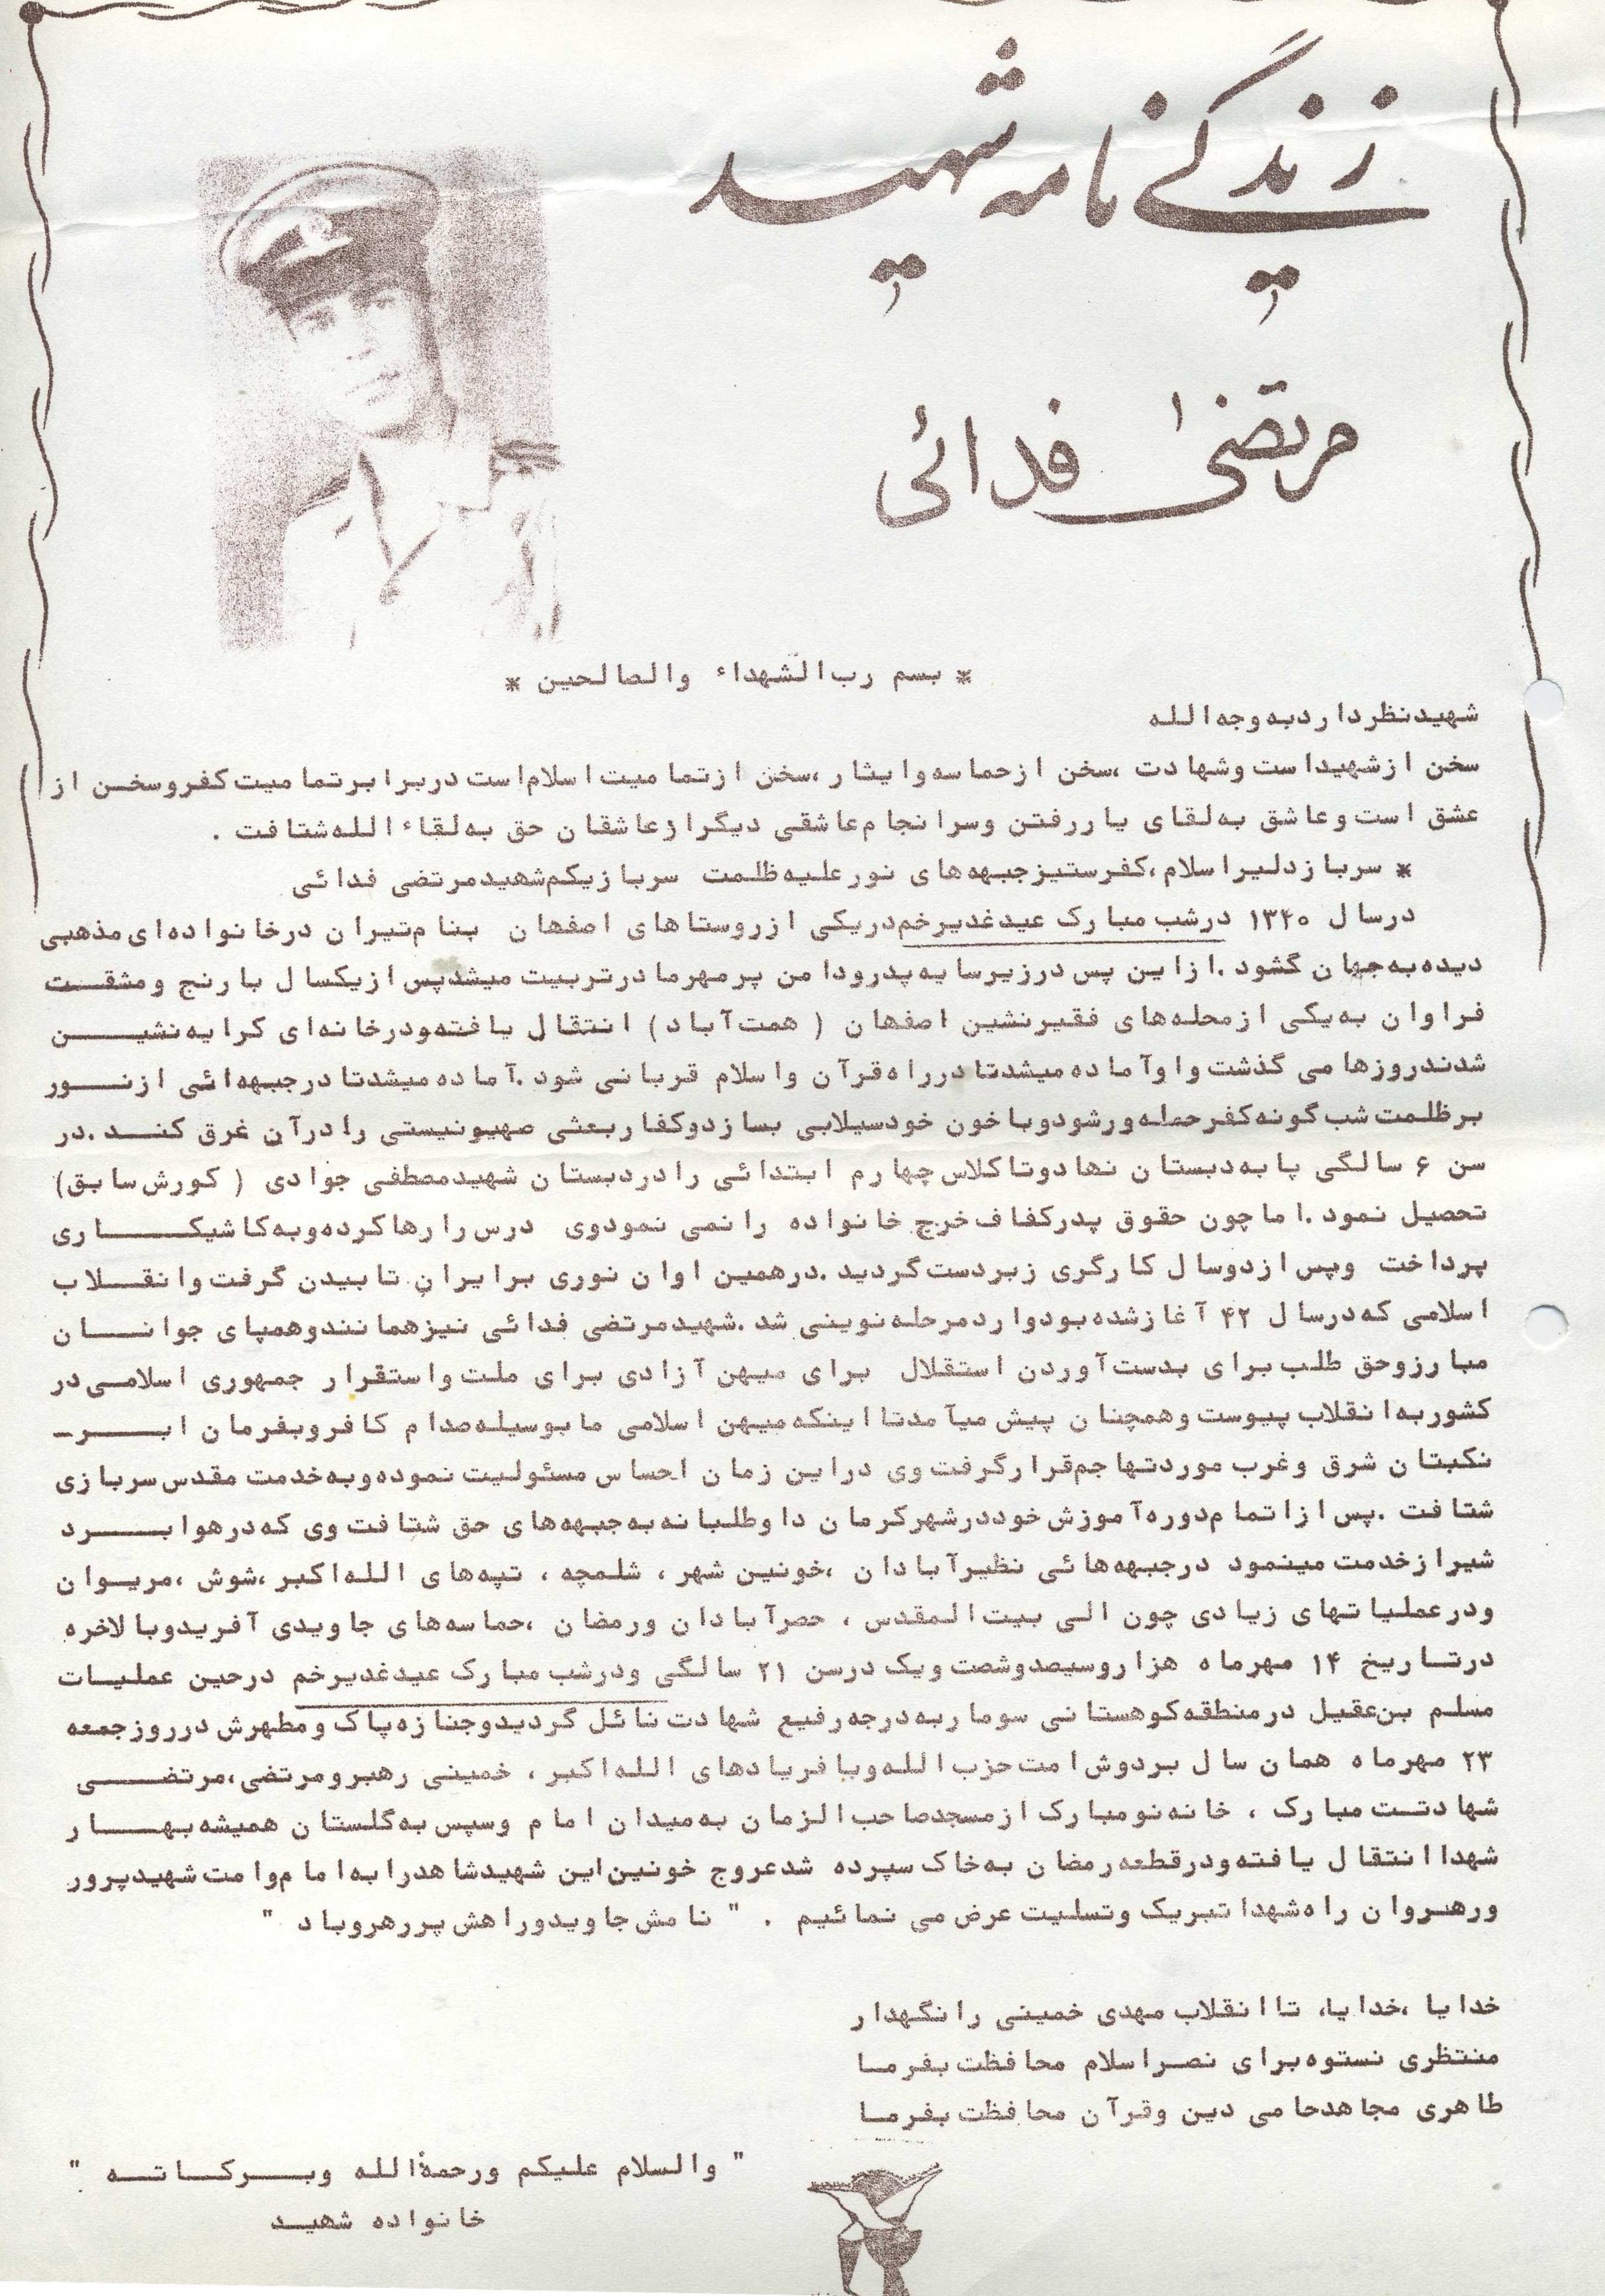 زندگی نامه شهید
مرتضیٰ فدائی
* بسم رب الشهداء والصالحین *
شهیدنظرداردبه وجه الله
سخن ازشهیداست وشهادت ،سخن ازحماسه وایثار ،سخن ازتمامیت اسلام است دربرابرتمامیت کفروسخن از
عشق است وعاشق به لقای یاررفتن وسرانجام عاشقی دیگرازعاشقان حق به لقاء الله شتافت .
* سربازدلیراسلام ،کفرستیزجبهه های نورعلیه ظلمت سربازیکم شهیدمرتضی فدائی
درسال ۱۳۴۰ درشب مبارک عیدغدیرخم دریکی ازروستاهای اصفهان بنام تیران درخانواده ای مذهبی
دیده به جهان گشود .ازاین پس درزیرسایه پدرودامن پرمهرمادرتربیت میشدپس ازیکسال بارنج ومشقت
فراوان به یکی ازمحله های فقیرنشین اصفهان ( همت آباد) انتقال یافته ودرخانه ای کرایه نشین
شدندروزهامی گذشت واوآماده میشدتادرراه قرآن واسلام قربانی شود .آماده میشدتادرجبهه ائی ازنور
برظلمت شب گونه کفرحمله ورشودوباخون خودسیلابی بسازدوکفاربعثی صهیونیستی رادرآن غرق کند .در
سن ۶ سالگی پابه دبستان نهادوتاکلاس چهارم ابتدائی رادردبستان شهیدمصطفی جوادی ( کورش سابق)
تحصیل نمود .اماچون حقوق پدرکفاف خرج خانواده رانمی نمودوی درس رارهاکرده وبه کاشیکاری
پرداخت وپس ازدوسال کارگری زبردست گردید .درهمین اوان نوری برایران تابیدن گرفت وانقلاب
اسلامی که درسال ۴۲ آغازشده بودواردمرحله نوینی شد .شهیدمرتضی فدائی نیزهمانندوهمپای جوانان
مبارزوحق طلب برای بدست آوردن استقلال برای میهن آزادی برای ملت واستقرار جمهوری اسلامی در
کشوربه انقلاب پیوست وهمچنان پیش میآمدتااینکه میهن اسلامی مابوسیله صدام کافروبفرمان ابر-
نکبتان شرق وغرب موردتهاجم قرارگرفت وی دراین زمان احساس مسئولیت نموده وبه خدمت مقدس سربازی
شتافت .پس ازاتمام دوره آموزش خوددرشهرکرمان داوطلبانه به جبهه های حق شتافت وی که درهوابرد
شیرازخدمت مینمود درجبهه هائی نظیرآبادان ،خونین شهر ، شلمچه ، تپه های الله اکبر ،شوش ،مریوان
ودرعملیاتهای زیادی چون الی بیت المقدس ، حصرآبادان ورمضان ،حماسه های جاویدی آفریدوبالاخره
درتاریخ ۱۴ مهرماه هزاروسیصدوشصت ویک درسن ۲۱ سالگی ودرشب مبارک عیدغدیرخم درحین عملیات
مسلم بن عقیل درمنطقه کوهستانی سوماربه درجه رفیع شهادت نائل گردیدوجنازه پاک ومطهرش درروزجمعه
۲۳ مهرماه همان سال بردوش امت حزب الله وبافریادهای الله اکبر ، خمینی رهبرومرتضی،مرتضی
شهادتت مبارک ، خانه نومبارک ازمسجدصاحب الزمان به میدان امام وسپس به گلستان همیشه بهار
شهداانتقال یافته ودرقطعه رمضان به خاک سپرده شدعروج خونین این شهیدشاهدرابه امام وامت شهیدپرور
ورهروان راه شهداتبریک وتسلیت عرض می نمائیم . " نامش جاویدوراهش پررهروباد "
خدایا ،خدایا، تاانقلاب مهدی خمینی رانگهدار
منتظری نستوه برای نصراسلام محافظت بفرما
طاهری مجاهدحامی دین وقرآن محافظت بفرما
" والسلام علیکم ورحمةالله وبرکاته "
خانواده شهید